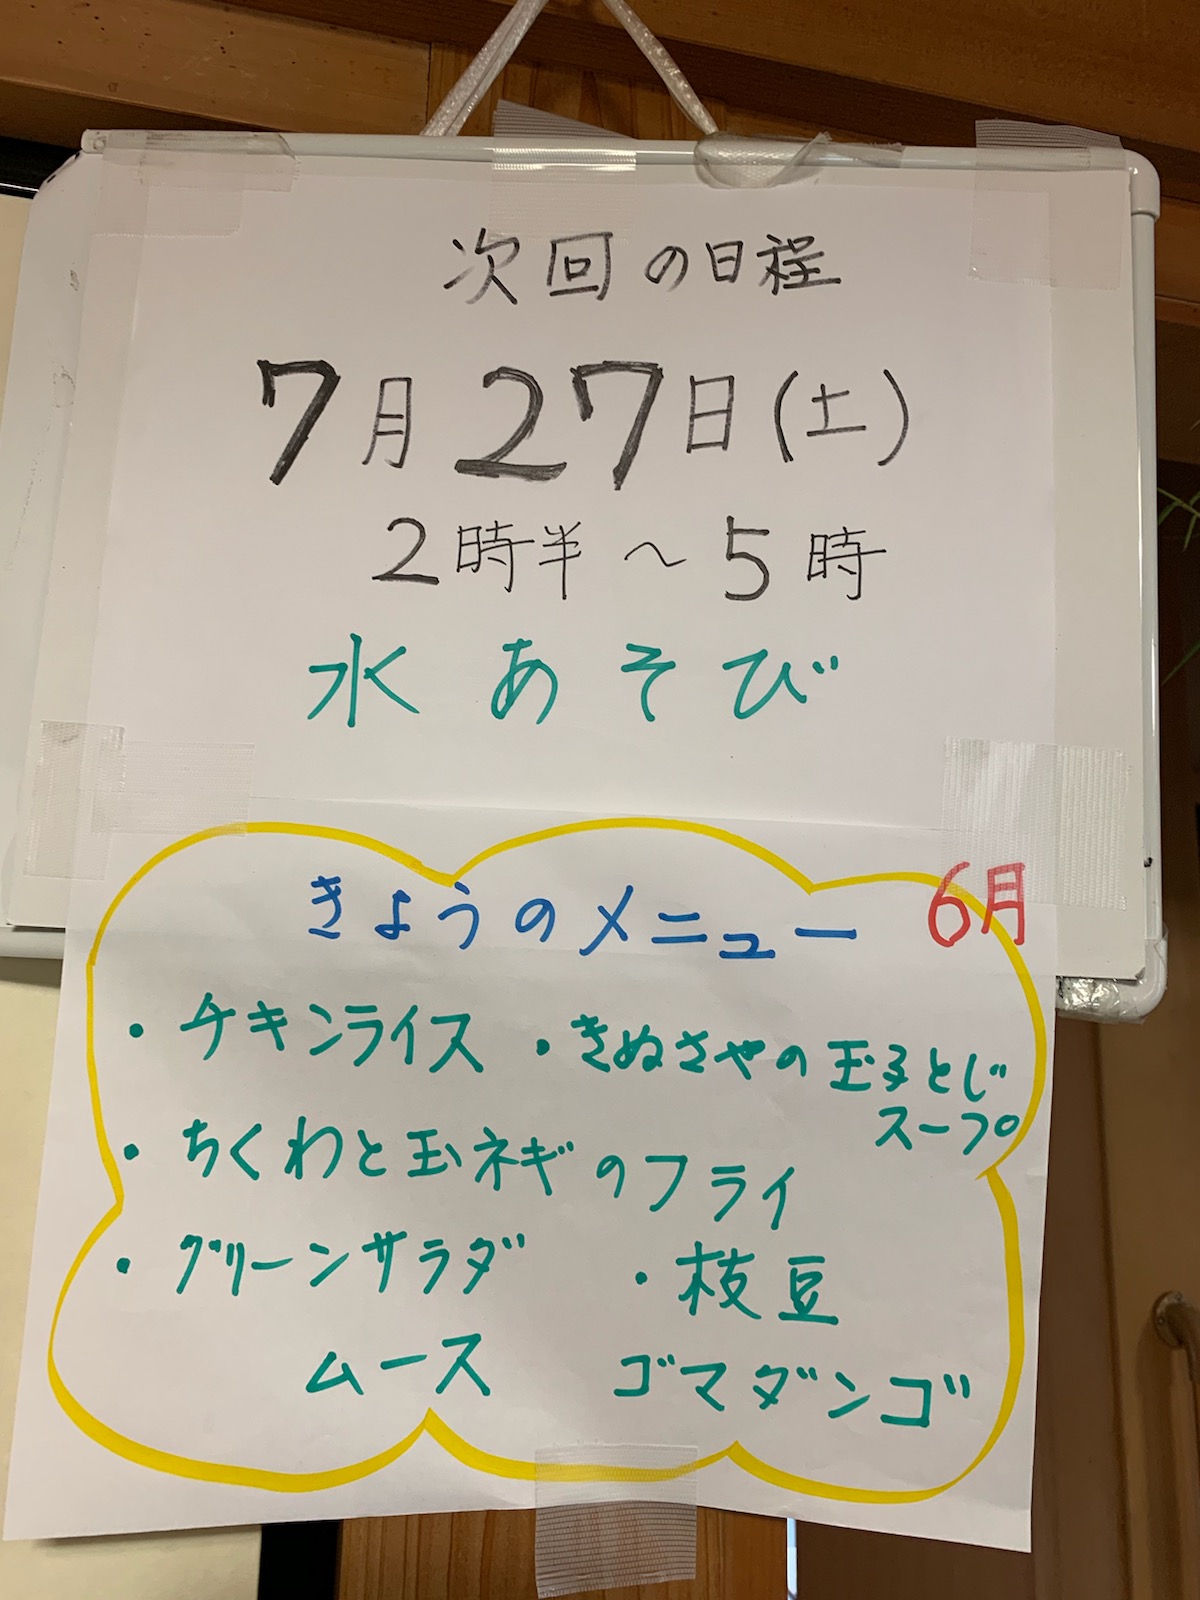 次回の日程
7月27日(土)
2時半~5時
水あそび
きょうのメニュー 6月
・チキンライス ・きぬさやの玉子とじ
スープ
・ちくわと玉ネギのフライ
・グリーンサラダ ・枝豆
ムース ゴマダンゴ